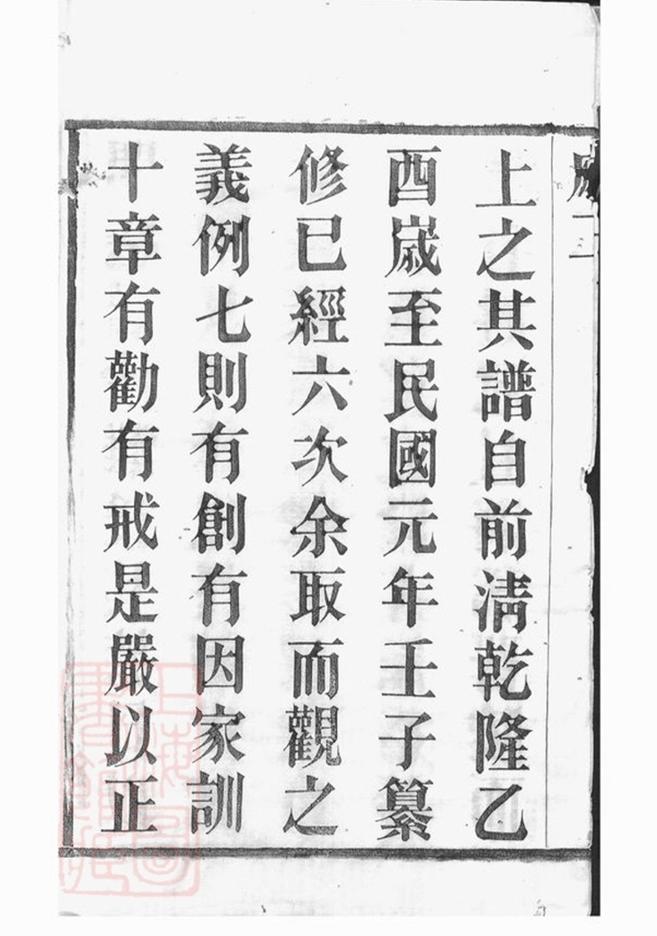 上之其譜自前淸乾隆乙
酉嵗至民國元年壬子纂
修已經六次余取而觀之
義例七則有創有因家訓
十章有勸有戒是嚴以正
上海圖
書館藏